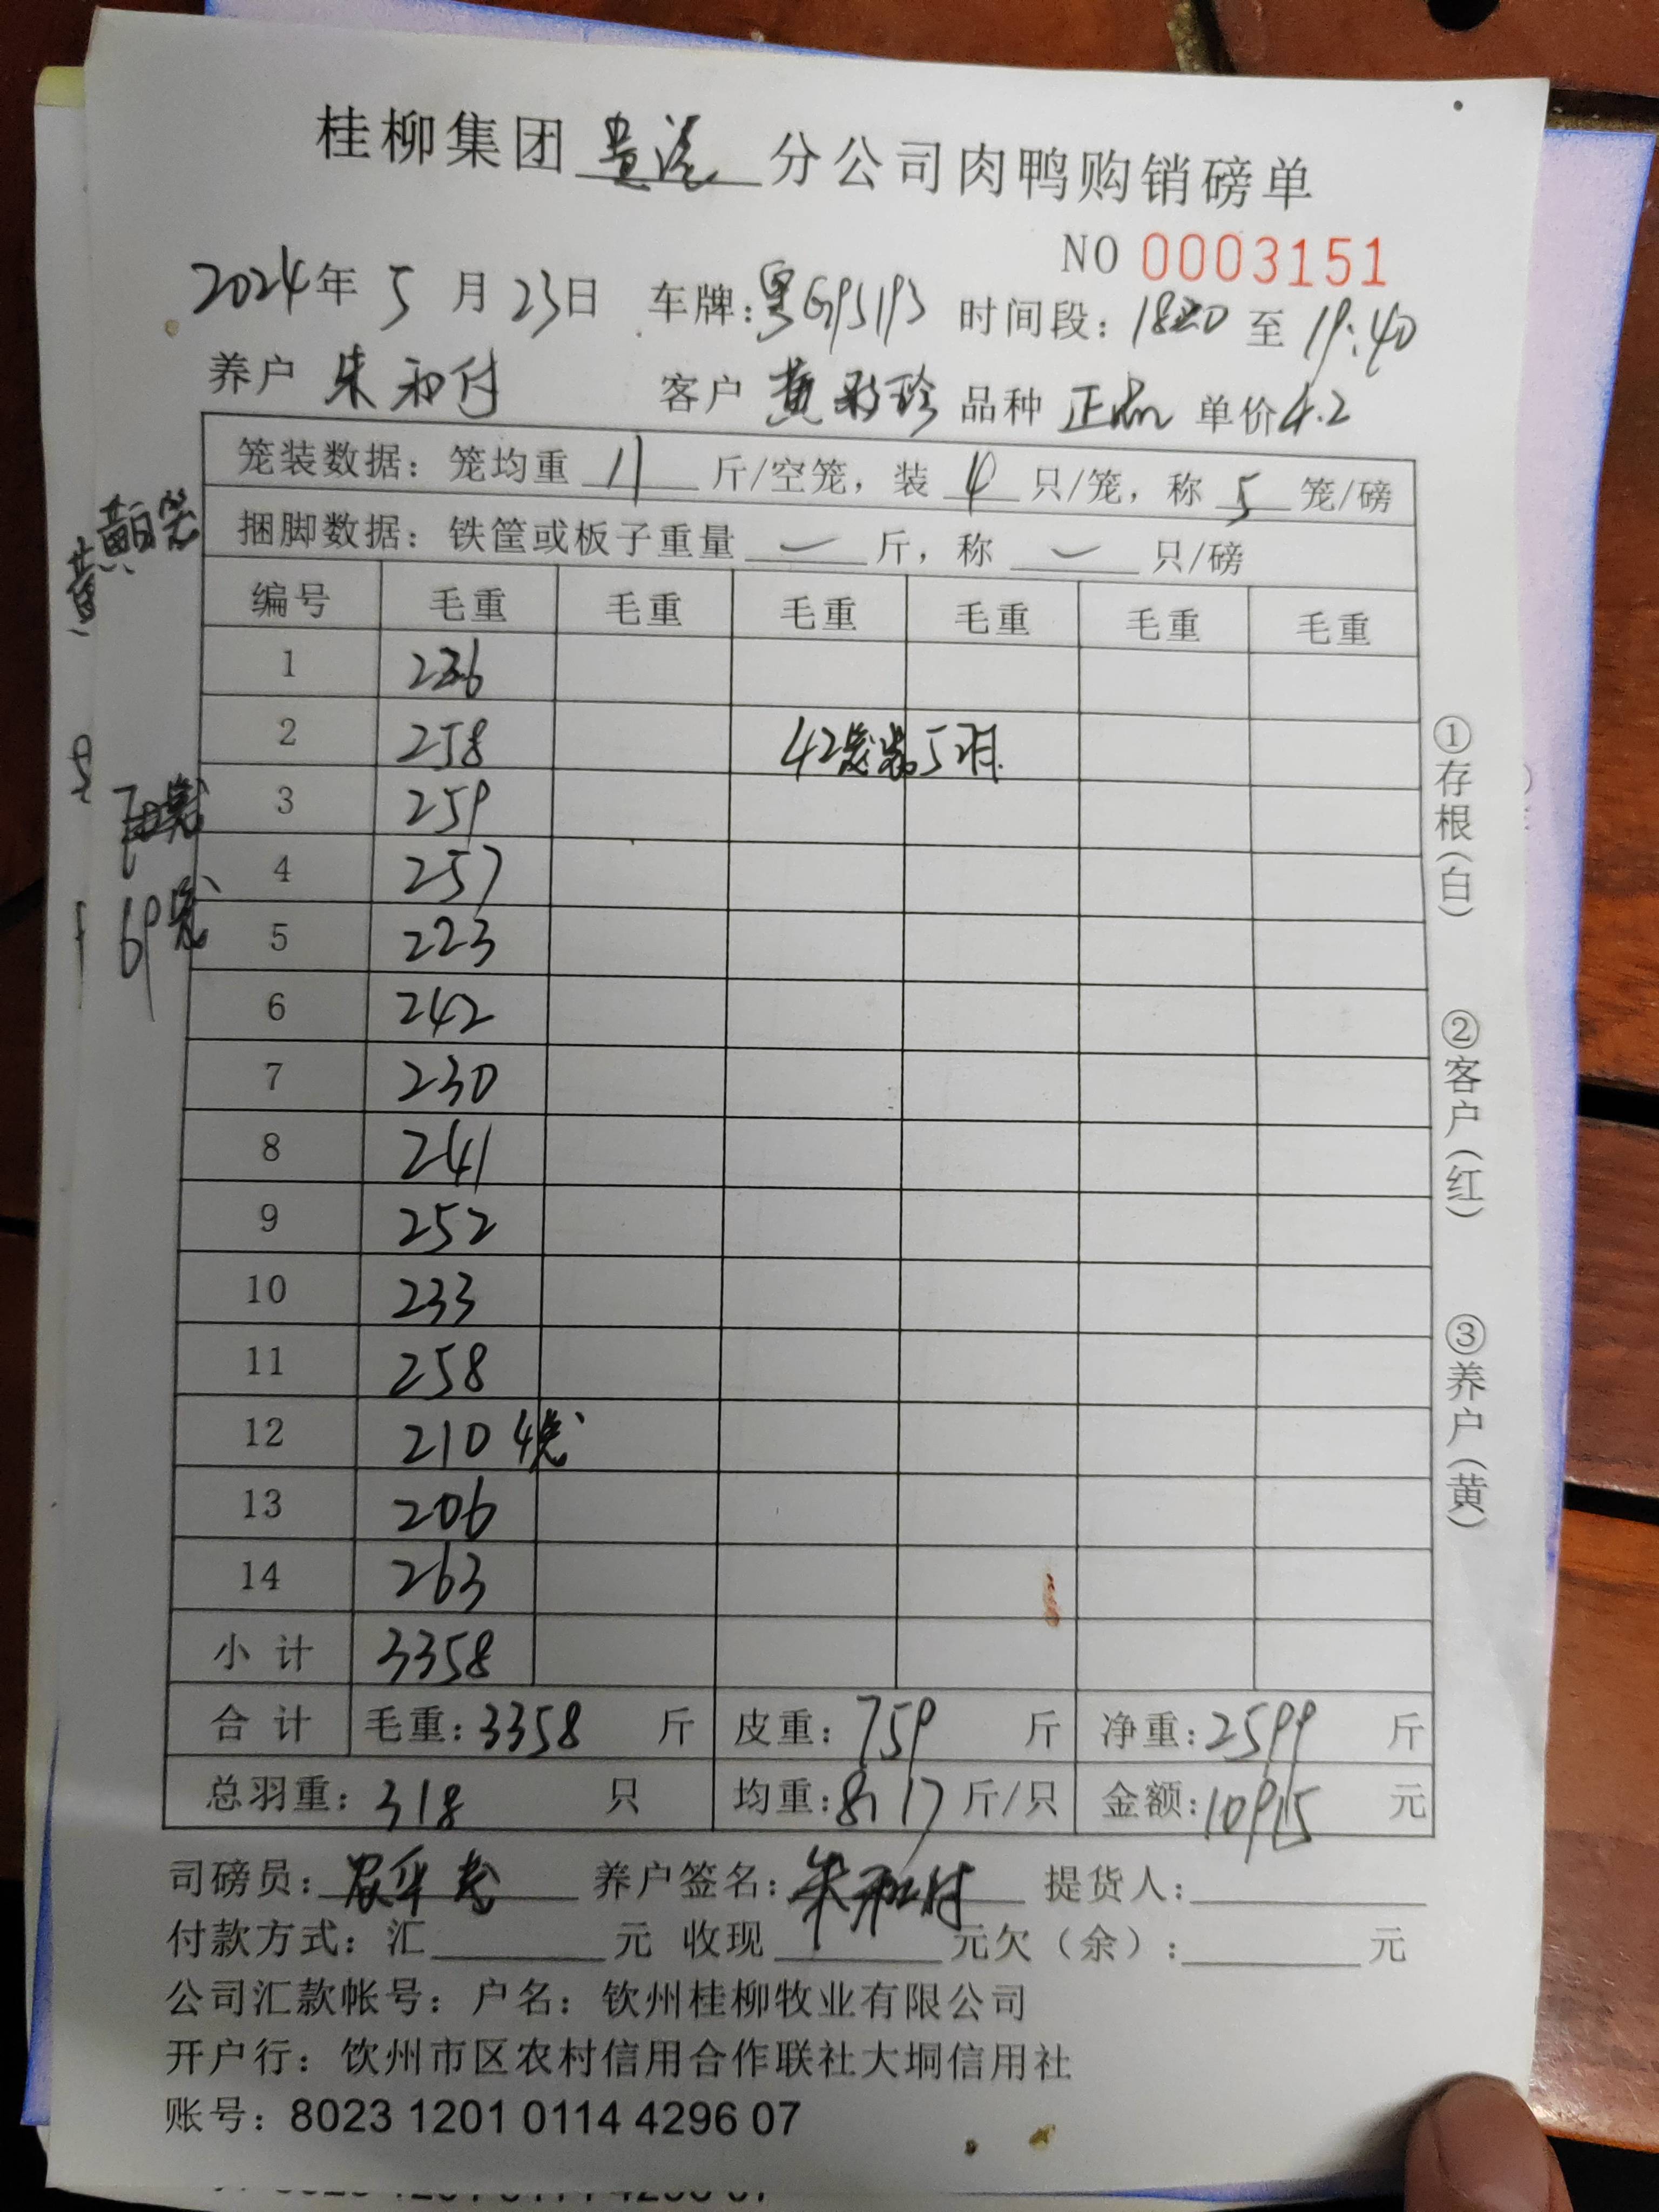 桂柳集团 贵港 分公司肉鸭购销磅单
NO 0003151
2024年 5 月 23日 车牌:粤GP5193 时间段: 1820 至 19:40
养户 朱和付 客户 黄彩珍 品种 正品 单价 4.2
笼装数据: 笼均重 11 斤/空笼, 装 只/笼, 称 5 笼/磅
捆脚数据: 铁筐或板子重量 斤, 称 只/磅
编号 毛重 毛重 毛重 毛重 毛重 毛重
1 226
2 258 42 5
3 259
4 257
69笼
5 223
6 242
7 230
8 241
9 252
10 233
11 258
12 210 4笼
13 206
14 263
小计 3358
合计 毛重: 3358 斤 皮重: 759 斤 净重: 2599 斤
总羽重: 318 只 均重: 8.17 斤/只 金额: 10915 元
司磅员: 养户签名: 朱和付 提货人:
付款方式: 汇 元 收现 元欠(余): 元
公司汇款帐号: 户名: 钦州桂柳牧业有限公司
开户行: 饮州市区农村信用合作联社大垌信用社
账号: 8023 1201 0114 4296 07
①存根(白)
②客户(红)
③养户(黄)